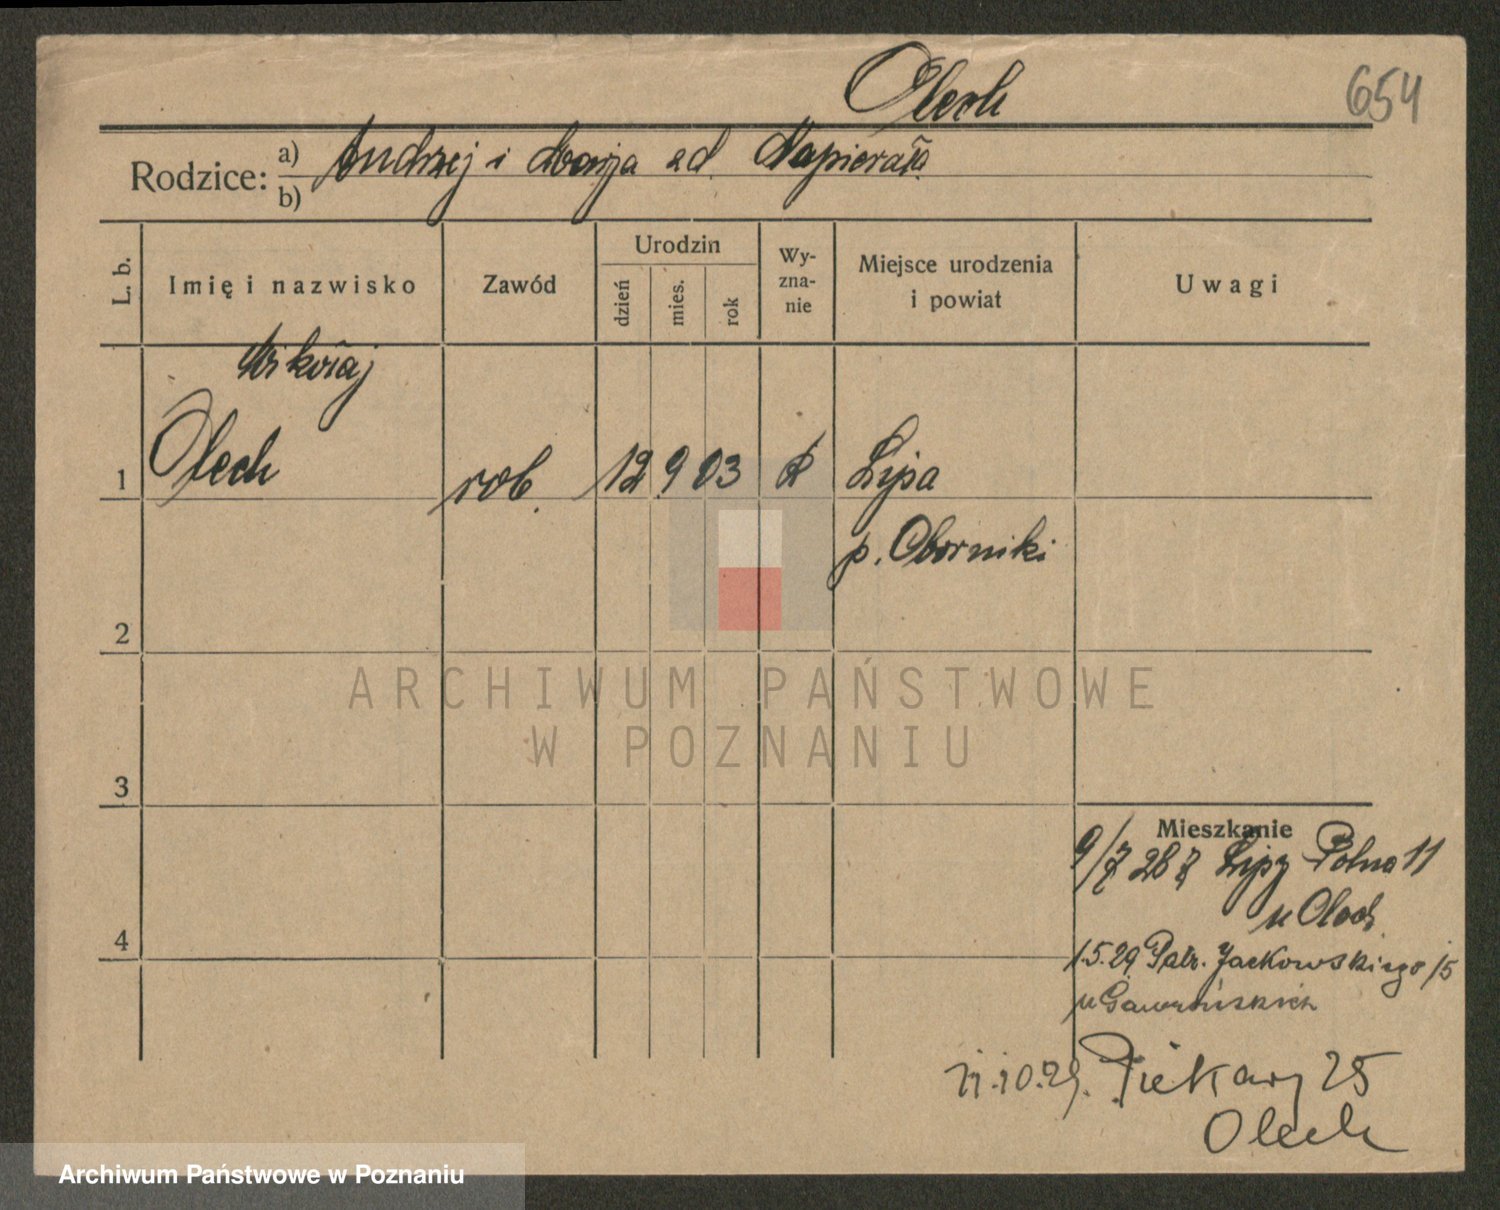 Olech
654
Rodzice: a) Andrzej i Marja zd. Napierała
b)
L. b.
Imię i nazwisko
Zawód
Urodzin
dzień
mies.
rok
Wy-
zna-
nie
Miejsce urodzenia
i powiat
Uwagi
Mikołaj
1 Olech rob. 12 9 03 k Lipa
p. Oborniki
2
ARCHIWUM PAŃSTWOWE
W POZNANIU
3
Mieszkanie
9/7 28 z Lipy Polna 11
u Olech
4
1.5.29 Patr. Jackowskiego 15
u Gawrońskich
11.10.29. Piekary 25
Olech
Archiwum Państwowe w Poznaniu